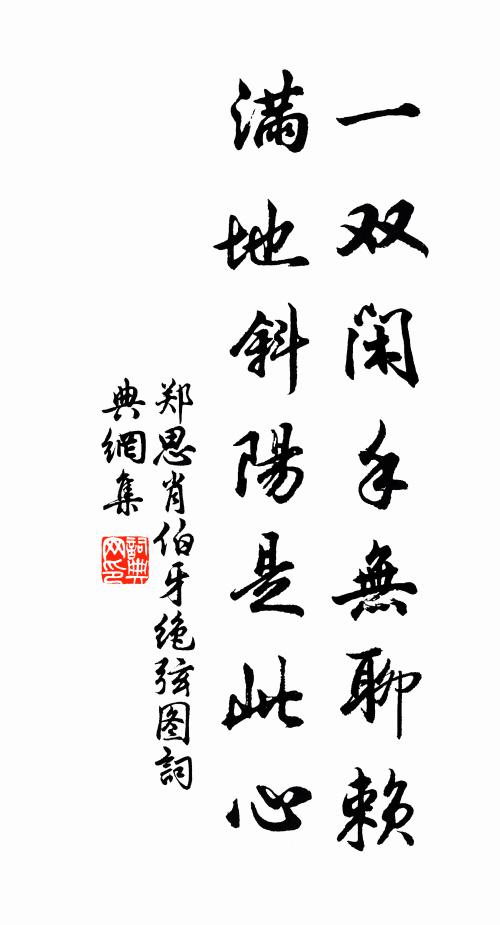 一双闲手無聊賴
满地斜陽是此心
郑思肖伯牙绝弦图詞
典網集
詞典
网印